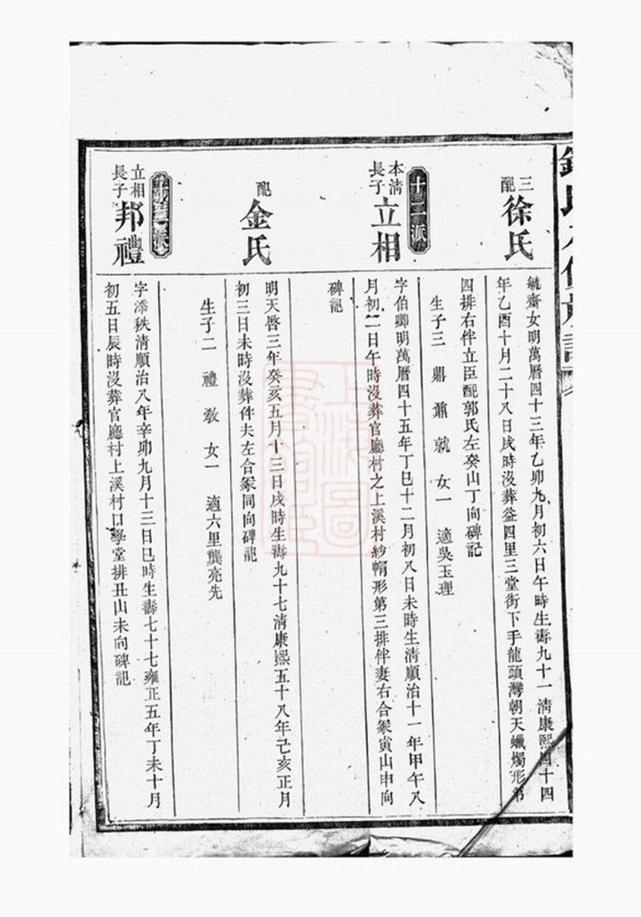 三配徐氏
毓齋女明萬曆四十三年乙卯九月初六日午時生壽九十一清康熙四十四
年乙酉十月二十八日戌時沒葬益四里三堂街下手龍頭灣朝天蠟燭形第
四排右伴立臣配郭氏左癸山丁向碑記
生子三 鼎 鼐 就 女一 適吳玉理
十二派
本清長子立相
字伯卿明萬曆四十五年丁巳十二月初八日未時生清順治十一年甲午八
月初二日午時沒葬官廳村之上溪村紗帽形第三排伴妻右合冢寅山申向
碑記
配金氏
明天啓三年癸亥五月十三日戌時生壽九十七清康熙五十八年己亥正月
初三日未時沒葬伴夫左合冢同向碑記
生子二 禮 教 女一 適六里龔亮先
立相長子邦禮
字添秩清順治八年辛卯九月十三日巳時生壽七十七雍正五年丁未十月
初五日辰時沒葬官廳村上溪村口學堂排丑山未向碑記